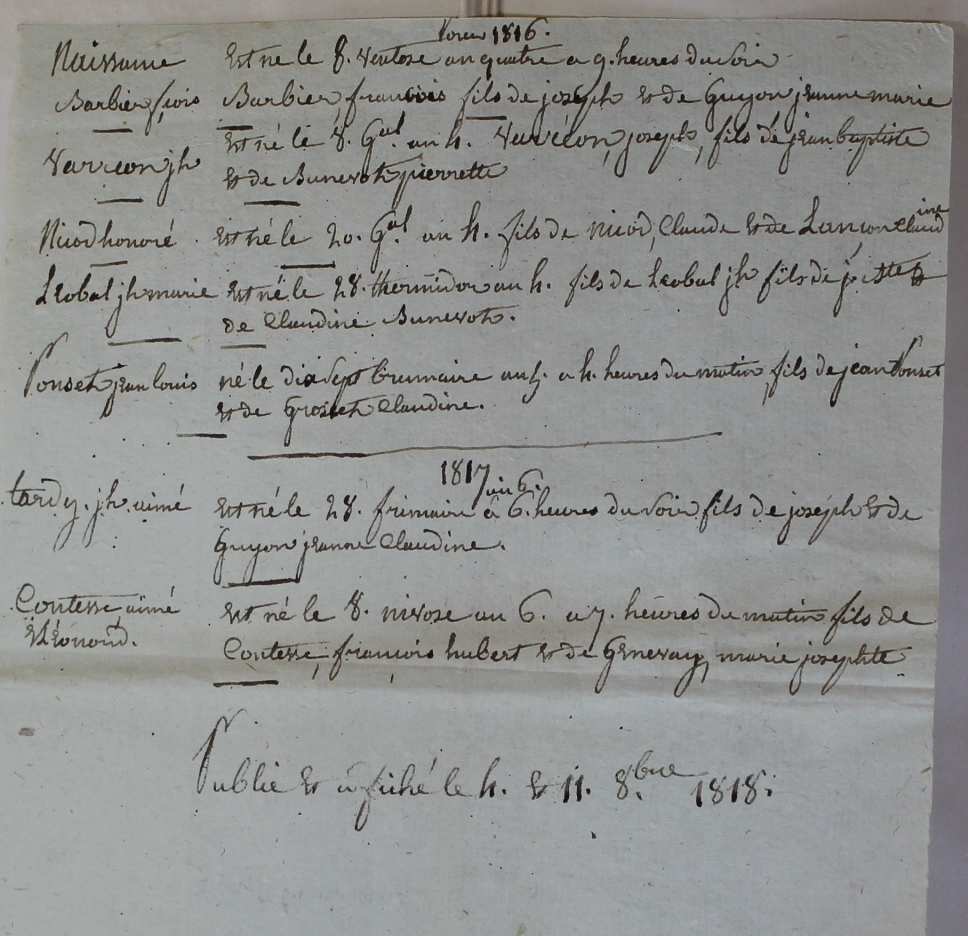 pour 1816.
Naissance Est né le 8. ventose an quatre a 9. heures du soir
Barbier, fçois Barbier, francois fils de joseph et de Guyon jeanne marie
Est né le 8. Gal. an 4. Varréon, joseph, fils de jean baptiste
Varréon jh et de Bunevoth pierrette
Nicod honoré Est né le 20. Gal. an 4. fils de nicod, Claude et de Lançon Claudine
Léobal jh marie Est né le 28. thermidor an 4. fils de Léobal jh fils de et
de Claudine Bunevoth.
Ponseth jean louis né le dix sept brumaire an 5. a 4. heures du matin, fils de jean Ponset
et de Grosseth Claudine.
1817 an 6.
tardy. jh. aimé Est né le 28. frimaire a 6. heures du soir fils de joseph et de
Guyon jeanne Claudine.
Contesse aimé Est né le 8. nivose an 6. a 7. heures du matin fils de
et Léonard. Contesse, francois hubert et de Genevay, marie josephte
Publié et afiché le 4. et 11. 8.bre 1818.